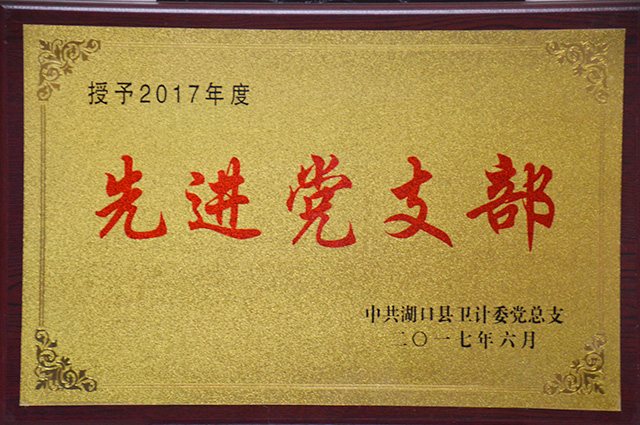 授予2017年度
先进党支部
中共湖口县卫计委党总支
二〇一七年六月